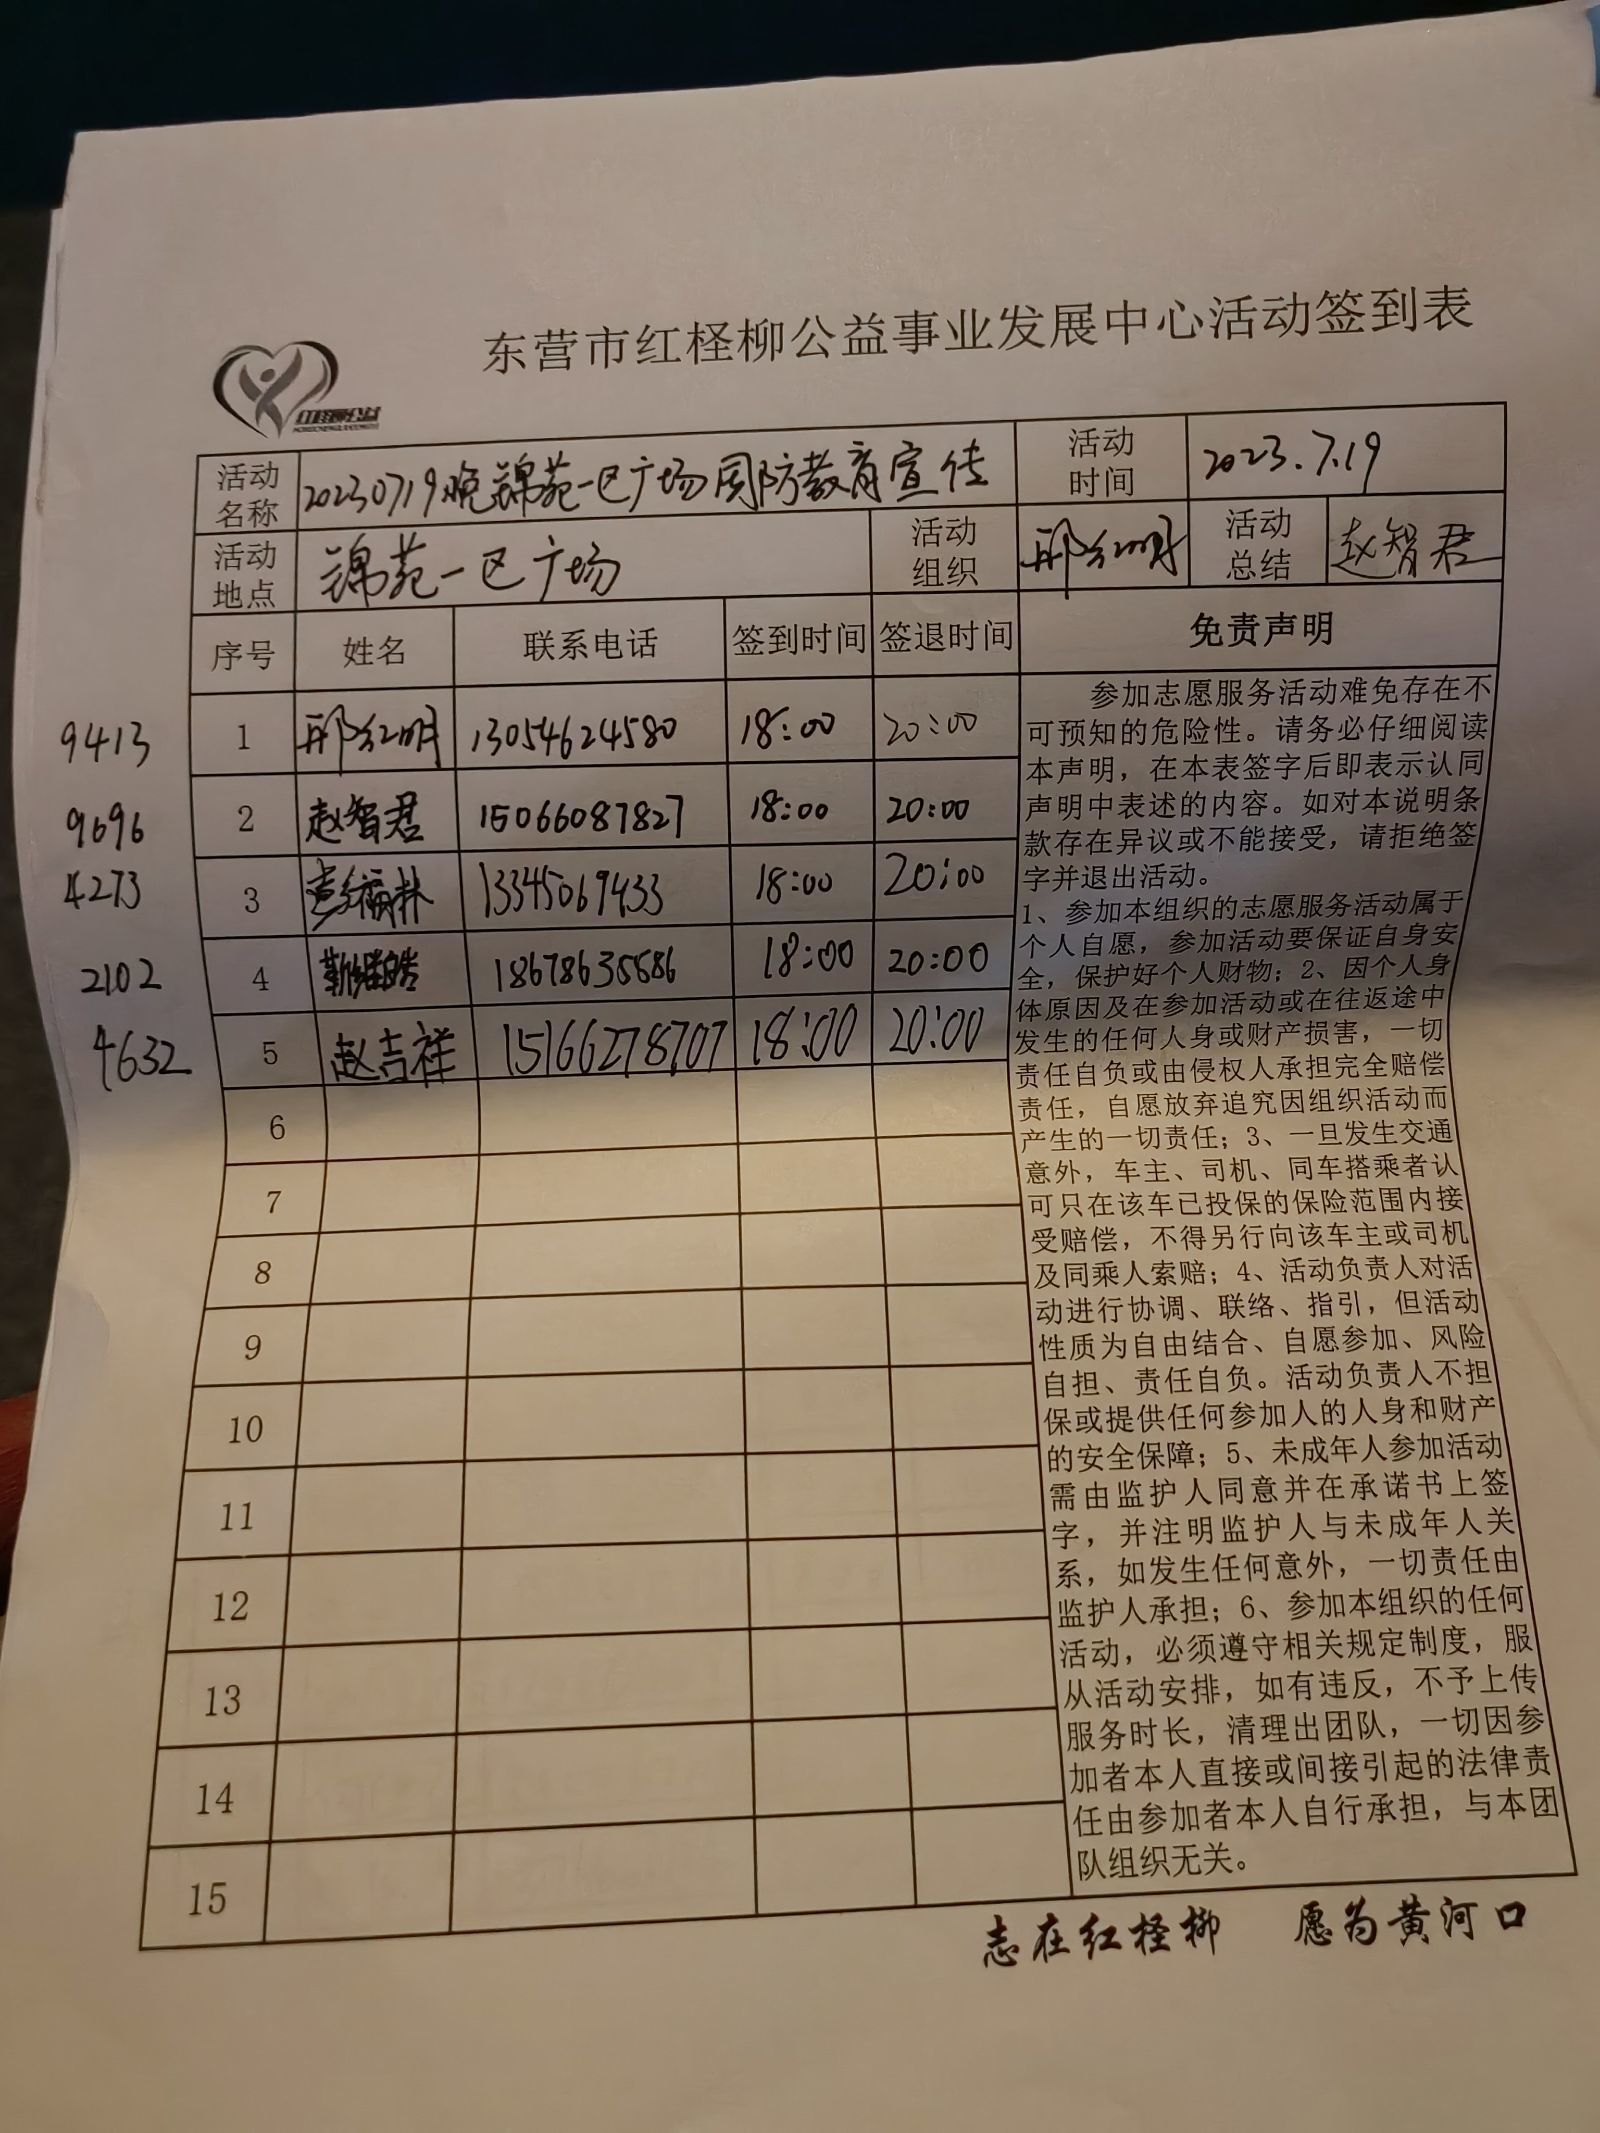 东营市红柽柳公益事业发展中心活动签到表
红柽柳公益
活动名称 20230719晚锦苑一区广场国防教育宣传 活动时间 2023.7.19
活动地点 锦苑一区广场 活动组织 邢红明 活动总结 赵智君
序号 姓名 联系电话 签到时间 签退时间 免责声明
9413 1 邢红明 13054624580 18:00 20:00
9696 2 赵智君 15066087827 18:00 20:00
4273 3 彭福林 13345069433 18:00 20:00
2102 4 18678635686 18:00 20:00
4632 5 赵吉祥 15166278707 18:00 20:00
6
7
8
9
10
11
12
13
14
15
参加志愿服务活动难免存在不
可预知的危险性。请务必仔细阅读
本声明，在本表签字后即表示认同
声明中表述的内容。如对本说明条
款存在异议或不能接受，请拒绝签
字并退出活动。
1、参加本组织的志愿服务活动属于
个人自愿，参加活动要保证自身安
全，保护好个人财物；2、因个人身
体原因及在参加活动或在往返途中
发生的任何人身或财产损害，一切
责任自负或由侵权人承担完全赔偿
责任，自愿放弃追究因组织活动而
产生的一切责任；3、一旦发生交通
意外，车主、司机、同车搭乘者认
可只在该车已投保的保险范围内接
受赔偿，不得另行向该车主或司机
及同乘人索赔；4、活动负责人对活
动进行协调、联络、指引，但活动
性质为自由结合、自愿参加、风险
自担、责任自负。活动负责人不担
保或提供任何参加人的人身和财产
的安全保障；5、未成年人参加活动
需由监护人同意并在承诺书上签
字，并注明监护人与未成年人关
系，如发生任何意外，一切责任由
监护人承担；6、参加本组织的任何
活动，必须遵守相关规定制度，服
从活动安排，如有违反，不予上传
服务时长，清理出团队，一切因参
加者本人直接或间接引起的法律责
任由参加者本人自行承担，与本团
队组织无关。
志在红柽柳 愿为黄河口